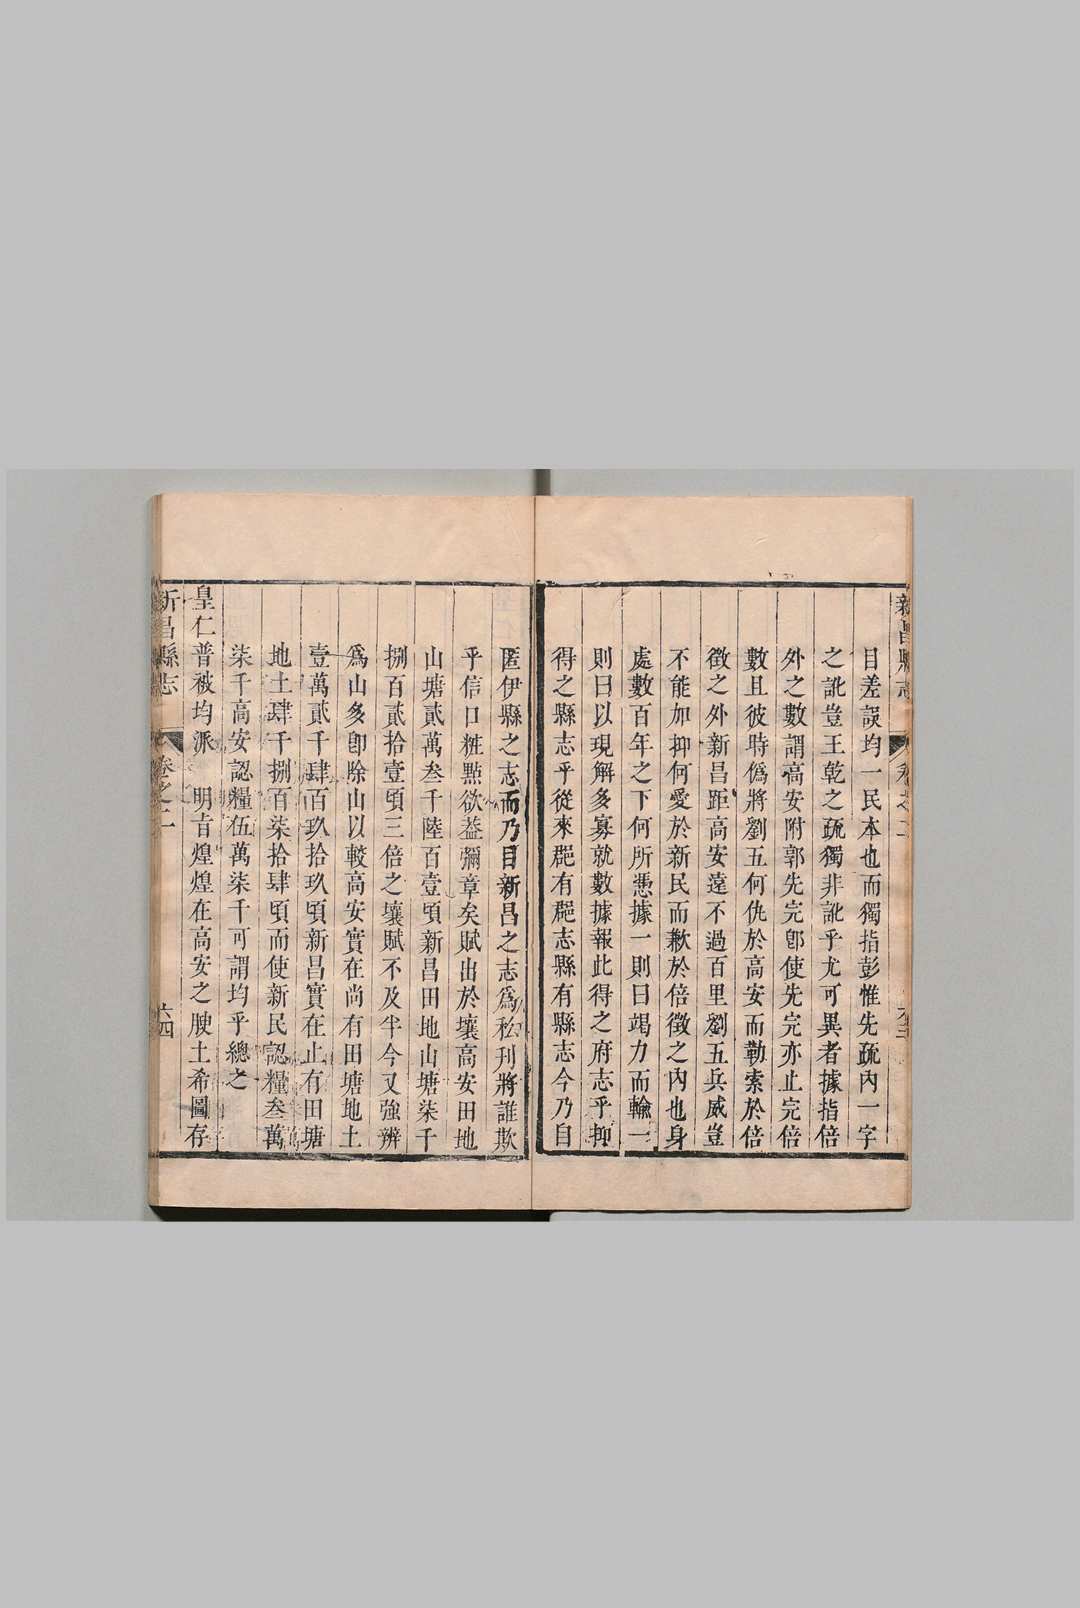 新昌縣志
卷之二
目差誤均一民本也而獨指彭惟先疏內一字
之訛豈王乾之疏獨非訛乎尤可異者據指倍
外之數謂高安附郭先完卽使先完亦止完倍
數且彼時僞將劉五何仇於高安而勒索於倍
徵之外新昌距高安遠不過百里劉五兵威豈
不能加抑何愛於新民而歉於倍徵之內也身
處數百年之下何所憑據一則曰竭力而輸一
則曰以現解多寡就數據報此得之府志乎抑
得之縣志乎從來郡有郡志縣有縣志今乃自
匿伊縣之志而乃目新昌之志爲私刊將誰欺
乎信口粧點欲益彌章矣賦出於壤高安田地
山塘貳萬叁千陸百壹頃新昌田地山塘柒千
捌百貳拾壹頃三倍之壤賦不及半今又強辨
爲山多卽除山以較高安實在尚有田塘地土
壹萬貳千肆百玖拾玖頃新昌實在止有田塘
地土肆千捌百柒拾肆頃而使新民認糧叁萬
柒千高安認糧伍萬柒千可謂均乎總之
皇仁普被均派 明旨煌煌在高安之腴土希圖存
新昌縣志
卷之二
六四